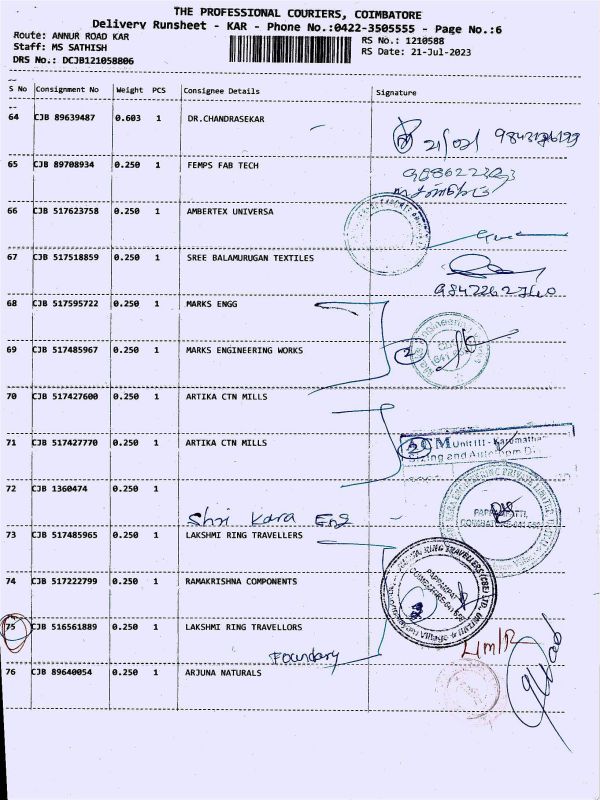 THE PROFESSIONAL COURIERS, COIMBATORE
Delivery Runsheet - KAR - Phone No.:0422-3505555 - Page No.:6
Route: ANNUR ROAD KAR
RS No.: 1210588
Staff: MS SATHISH
RS Date: 21-Jul-2023
DRS No.: DCJB121058806
S No Consignment No Weight PCS Consignee Details Signature
64 CJB 89639487 0.603 1 DR.CHANDRASEKAR
65 CJB 89708934 0.250 1 FEMPS FAB TECH
66 CJB 517623758 0.250 1 AMBERTEX UNIVERSA
67 CJB 517518859 0.250 1 SREE BALAMURUGAN TEXTILES
68 CJB 517595722 0.250 1 MARKS ENGG
69 CJB 517485967 0.250 1 MARKS ENGINEERING WORKS
2
70 CJB 517427600 0.250 1 ARTIKA CTN MILLS
71 CJB 517427770 0.250 1 ARTIKA CTN MILLS
2 CM Unit III - Karumatha
Sizing and
72 CJB 1360474 0.250 1
Shri Kara Eng
73 CJB 517485965 0.250 1 LAKSHMI RING TRAVELLERS
74 CJB 517222799 0.250 1 RAMAKRISHNA COMPONENTS
75 CJB 516561889 0.250 1 LAKSHMI RING TRAVELLORS
Foundary
76 CJB 89640054 0.250 1 ARJUNA NATURALS